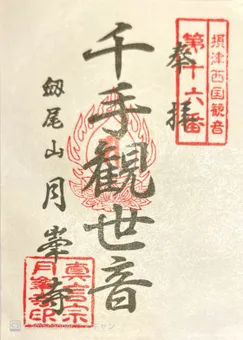 摂津西国観音
第十六番
奉拝
千手観世音
剱尾山
月峯寺
真言宗
月峯寺印